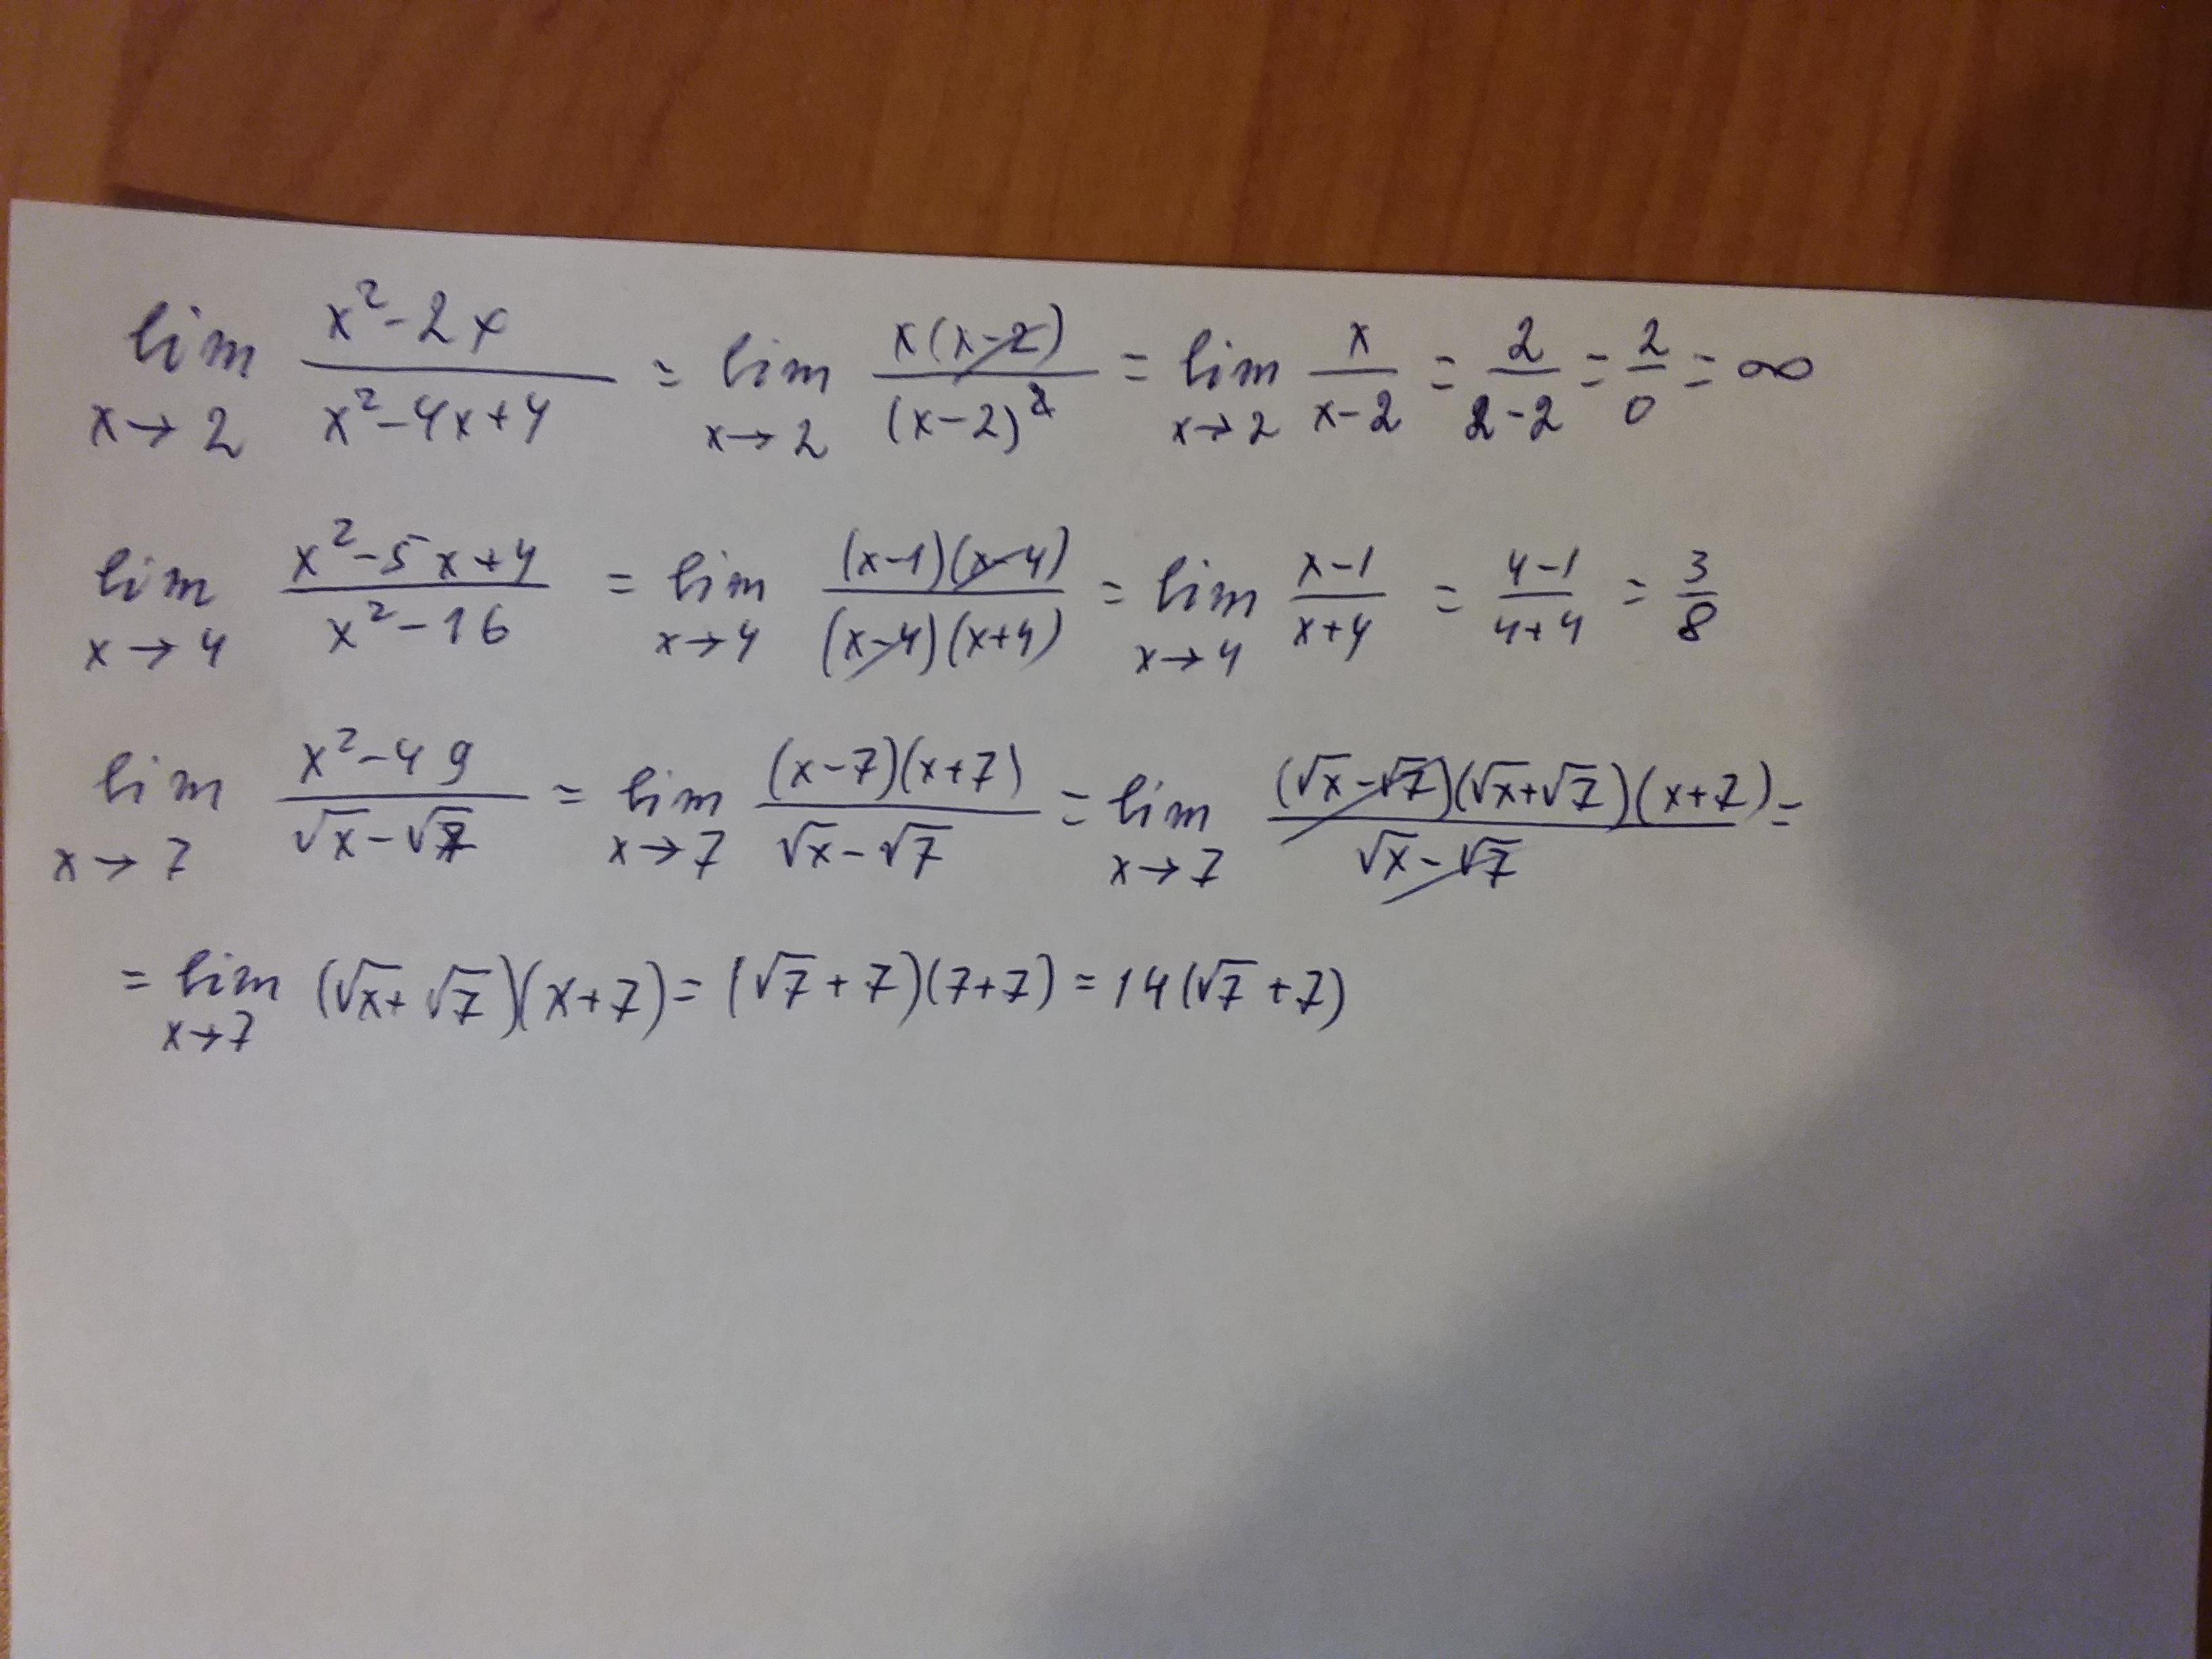 lim x→2 (x²-2x)/(x²-4x+4) = lim x→2 x(x-2)/(x-2)² = lim x→2 x/(x-2) = 2/(2-2) = 2/0 = ∞
lim x→4 (x²-5x+4)/(x²-16) = lim x→4 (x-1)(x-4)/(x-4)(x+4) = lim x→4 (x-1)/(x+4) = (4-1)/(4+4) = 3/8
lim x→7 (x²-49)/(√x-√7) = lim x→7 (x-7)(x+7)/(√x-√7) = lim x→7 (√x-√7)(√x+√7)(x+7)/(√x-√7) =
= lim x→7 (√x+√7)(x+7) = (√7+7)(7+7) = 14(√7+7)